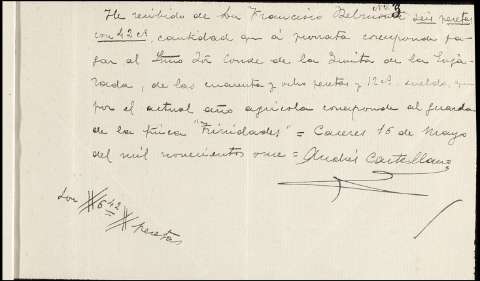 Nº 3
He recibido de Don Francisco Belmonte seis pesetas
con 42 cts, cantidad que á prorrata corresponde pa-
gar al Excmo Sr Conde de la Quinta de la Enja-
rada, de las cuarenta y ocho pesetas y 12 cts. sueldo, que
por el actual año agricola corresponde al guarda
de la finca "Trinidades" = Caceres 15 de Mayo
del mil novecientos once = Andrés Castellano
Son ## 6'42 ## pesetas